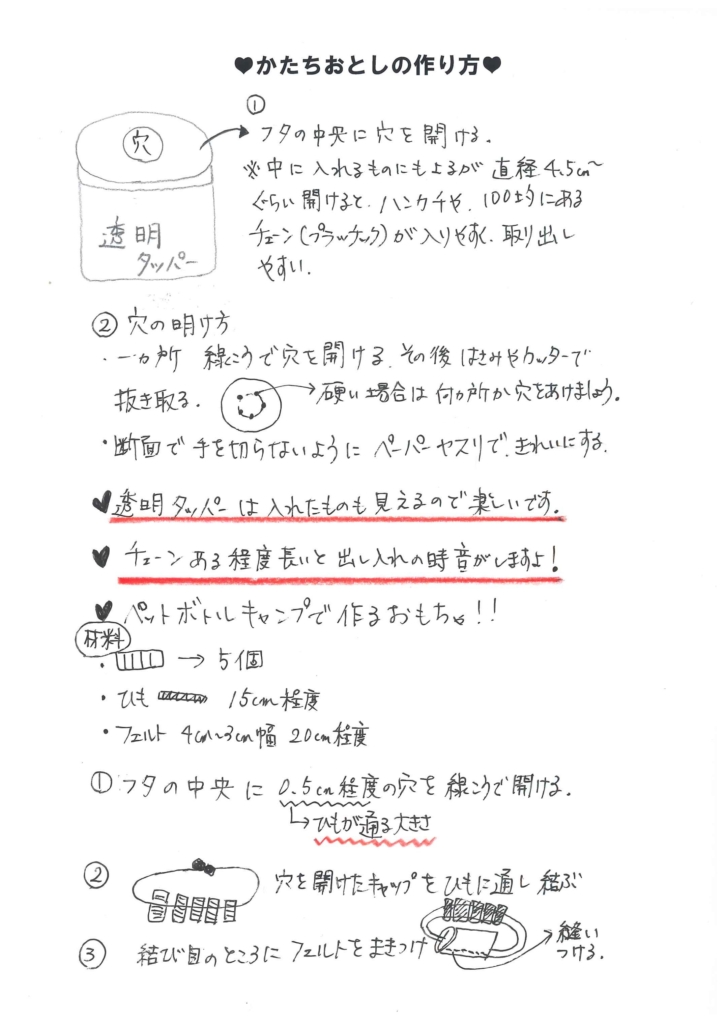 ♥かたちおとしの作り方♥
①
穴
フタの中央に穴を開ける.
※中に入れるものにもよるが 直径4.5cm〜
ぐらい開けると. ハンカチや. 100均にある
チェーン(プラッチック)が入りやすく. 取り出し
やすい.
透明
タッパー
②穴の明け方
・一カ所 線こうで穴を開ける. その後 はさみやカッターで
抜き取る.
硬い場合は 何カ所か穴をあけましょう.
・断面で手を切らないように ペーパーヤスリで.きれいにする.
♥透明タッパーは入れたものも見えるので楽しいです.
♥チェーンある程度長いと出し入れの時音がしますよ!
♥ペットボトルキャンプで作るおもちゃ!!
材料
・→5個
・ひも 15cm程度
・フェルト 4cm〜3cm幅 20cm程度
①フタの中央に 0.5cm程度の穴を線こうで開ける.
↳ひもが通る大きさ
② 穴を開けたキャップをひもに通し結ぶ
③ 結び目のところにフェルトをまきつけ
縫い
つける.